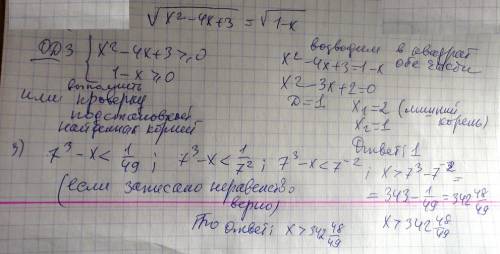 √x²-4x+3 = √1-x
ОДЗ { x²-4x+3⩾0
1-x⩾0
выполнить
или проверку
подстановкой
найденных корней
возводим в квадрат
обе части
x²-4x+3=1-x
x²-3x+2=0
D=1
x₁=2 (лишний
x₂=1 корень)
Ответ: 1
7³-x<1/49; 7³-x<1/7²; 7³-x<7⁻²; x>7³-7⁻²=
(если записано неравенство
верно)
=343-1/49=342 48/49
x>342 48/49
То ответ: x>342 48/49